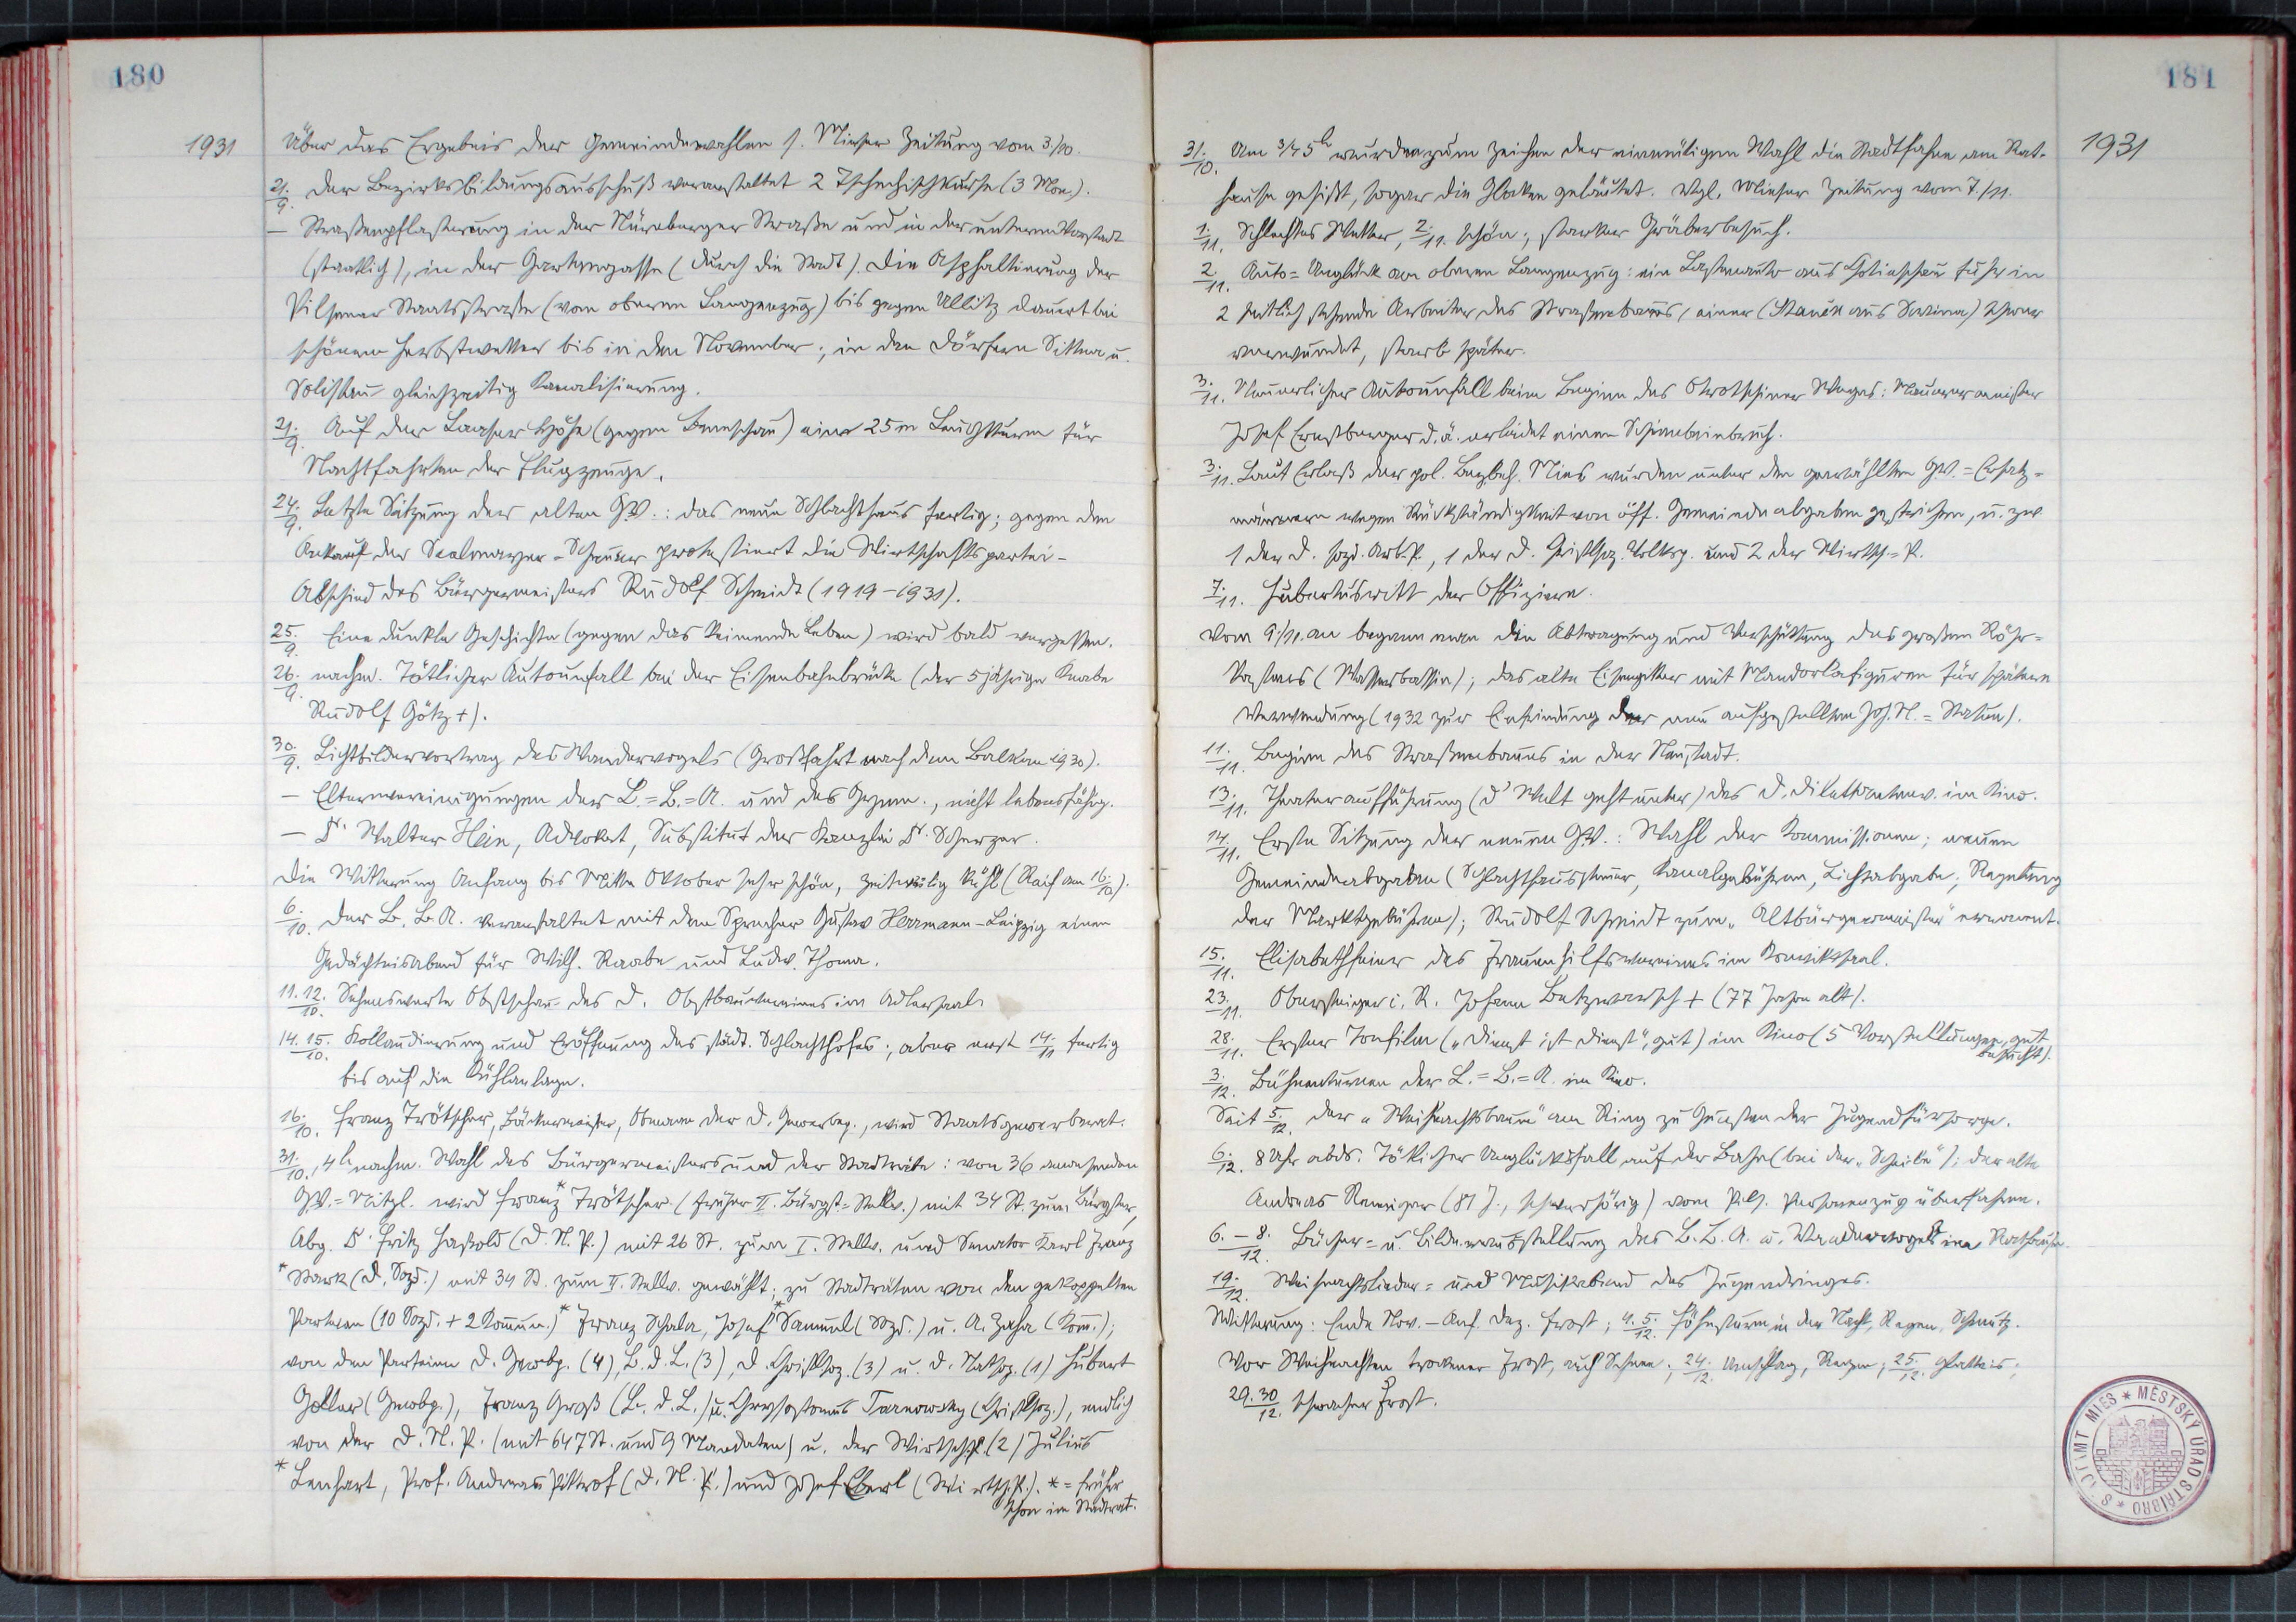 180
1931
Über das Ergebnis der Gemeindewahlen s. Mieser Zeitung vom 3./10.
21./9. Der Bezirksbildungsausschuß veranstaltet 2 Tschechischkurse (3 Mon.).
— Straßenpflasterung in der Nürnberger Straße und in der unteren Vorstadt
(staatlich), in der Gartengasse (durch die Stadt). Die Asphaltierung der
Pilsener Staatsstraße (vom oberen Langenzug) bis gegen Ullitz dauert bei
schönem Herbstwetter bis in den November; in den Dörfern Sittna u.
Solislau gleichzeitig Kanalisierung.
21./9. Auf der Höhe (gegen Beneschau) ein 25 m Leuchtturm für
Nachtfahrten der Flugzeuge.
24./9. Letzte Sitzung der alten GV.: das neue Schlachthaus fertig; gegen den
Ankauf der Scheuer protestiert die Wirtschaftspartei –
Abschied des Bürgermeisters Rudolf Schmidt (1919–1931).
25./9. Eine dunkle Geschichte (gegen das keimende Leben) wird bald vergessen.
26./9. nachm. Tötlicher Autounfall bei der Eisenbahnbrücke (der 5jährige Knabe
Rudolf Götz +).
30./9. Lichtbildervortrag des Wandervogels (Großfahrt nach dem Balkan 1930).
— Elternvereinigungen der L.=B.=A. und des Gymn., nicht lebensfähig.
— Dr. Walter Hein, Advokat, Substitut der Kanzlei Dr. Scherzer.
Die Witterung Anfang bis Mitte Oktober sehr schön, zeitweilig kühl (Reif am 16./10.).
6./10. Der B. B. A. veranstaltet mit dem Sprecher Gustav Herrmann–Leipzig einen
Gedächtnisabend für Wilh. Raabe und Ludw. Thoma.
11. 12./10. Sehenswerte Obstschau des D. Obstbauvereines im Adlersaal.
14. 15./10. Kollaudierung und Eröffnung des städt. Schlachthofes; aber erst 14./11 fertig
bis auf die Kühlanlage.
16./10. Franz Trötscher, Bäckermeister, Obmann der D. Gewerbep., wird Staatsgewerberat.
31./10., 4h nachm. Wahl des Bürgermeisters und der Stadträte: von 36 anwesenden
GV.=Mitgl. wird Franz* Trötscher (früher II. Bürgst=Stellv.) mit 34 St. zum Bürgster,
Abg. Dr. Fritz Haßold (D. N. P.) mit 26 St. zum I. Stellv. und Senator Karl Franz
*Stark (D. Sozd.) mit 34 St. zum II. Stellv. gewählt; zu Stadträten von den gekoppelten
Parteien (10 Sozd. + 2 Kommun.)* Franz Schala, Josef *Sammel (Sozd.) u. A. Zaha (Kom.);
von den Parteien D. Gewbp. (4), B. d. L. (3), D. Christlsoz. (3) u. D. Natsoz. (1) Hubert
Goller (Gewbp.), Franz Groß (B. d. L.) u. Chrysostomus Tarnowsky (Christlsoz.), endlich
von der D. N. P. (mit 647 St. und 9 Mandaten) u. der Wirtschp. (2) Julius
*Lenhart, Prof. Andreas Pittrof (D. N. P.) und Josef Eberl (Wirtsch. P.). * = früher
schon im Stadtrat.
181
1931
31./10. Um 3/4 5h wurden zum Zeichen der einmütigen Wahl die Stadtfahne am Rat-
hause gehißt, sogar die Glocken geläutet. Vgl. Mieser Zeitung vom 7./11.
1./11. Schlechtes Wetter, 2./11. schön; starker Gräberbesuch.
2./11. Auto=Unglück am oberen Langenzug: ein Lastenauto aus Chotieschau fuhr in
2 seitlich stehende Arbeiter des Straßenbaues, einer (Staněk aus ) schwer
verwundet, starb später.
3./11. Neuerlicher Autounfall beim Beginn des Otrotschiner Weges: Maurermeister
Josef Ernstberger d. ä. erleidet einen Schienbeinbruch.
3./11. Laut Erlaß der pol. Bezbeh. Mies wurden unter den gewählten GV.=Ersatz=
männern wegen Rückständigkeit von öff. Gemeindeabgaben gestrichen, u. zw.
1 der D. sozd. Arb.P., 1 der D. Christlsoz. Volksp. und 2 der Wirtsch.=P.
7./11. Hubertusritt der Offiziere.
Vom 9./11. an begann man die Abtragung und Verschüttung des großen Röhr=
kastens (Wasserbassin); das alte Eisengitter mit Mandorlafiguren für spätere
Verwendung (1932 zur Einfriedung der neu aufgestellten Joh. N. = Statue).
11./11. Beginn des Straßenbaues in der Neustadt.
13./11. Theateraufführung (d' Welt geht unter) des D. Dilettantenv. im Kino.
14./11. Erste Sitzung der neuen GV.: Wahl der Kommissionen; neuen
Gemeindeabgaben (Schlachthaussteuer, Kanalgebühren, Lichtabgabe, Regelung
der Marktgebühren); Rudolf Schmidt zum „Altbürgermeister" ernannt.
15./11. Elisabethfeier des Frauenhilfsvereines im Konviktsaal.
23./11. Obersteiger i. R. Johann Batzwarsch + (77 Jahre alt).
28./11. Erster Tonfilm („Dienst ist Dienst", gut) im Kino (5 Vorstellungen, gut
besucht).
3./12. Bühnenturnen der L.=B.=A. im Kino.
Seit 5./12. der „Weihnachtsbaum" am Ring zu Gunsten der Jugendfürsorge.
6./12. 8 Uhr abds. Tötlicher Unglücksfall auf der Bahn (bei der „Scheibe"); der alte
Andreas (81 J., schwerhörig) vom Pils. Personenzug überfahren.
6. – 8./12. Bücher= u. Bilderausstellung des B. B. A. u. Wandervogels im Rathause.
19./12. Weihnachtslieder= und Musikabend des Jugendringes.
Witterung: Ende Nov. – Anf. Dez. Frost; 4. 5./12. Föhnsturm in der Nacht, Regen, Schmutz.
Vor Weihnachten trockener Frost, auch Schnee; 24./12. Umschlag, Regen; 25./12. Glatteis;
29. 30/12. schwacher Frost.
STADTAMT MIES * MĚSTSKÝ ÚŘAD STŘÍBRO *